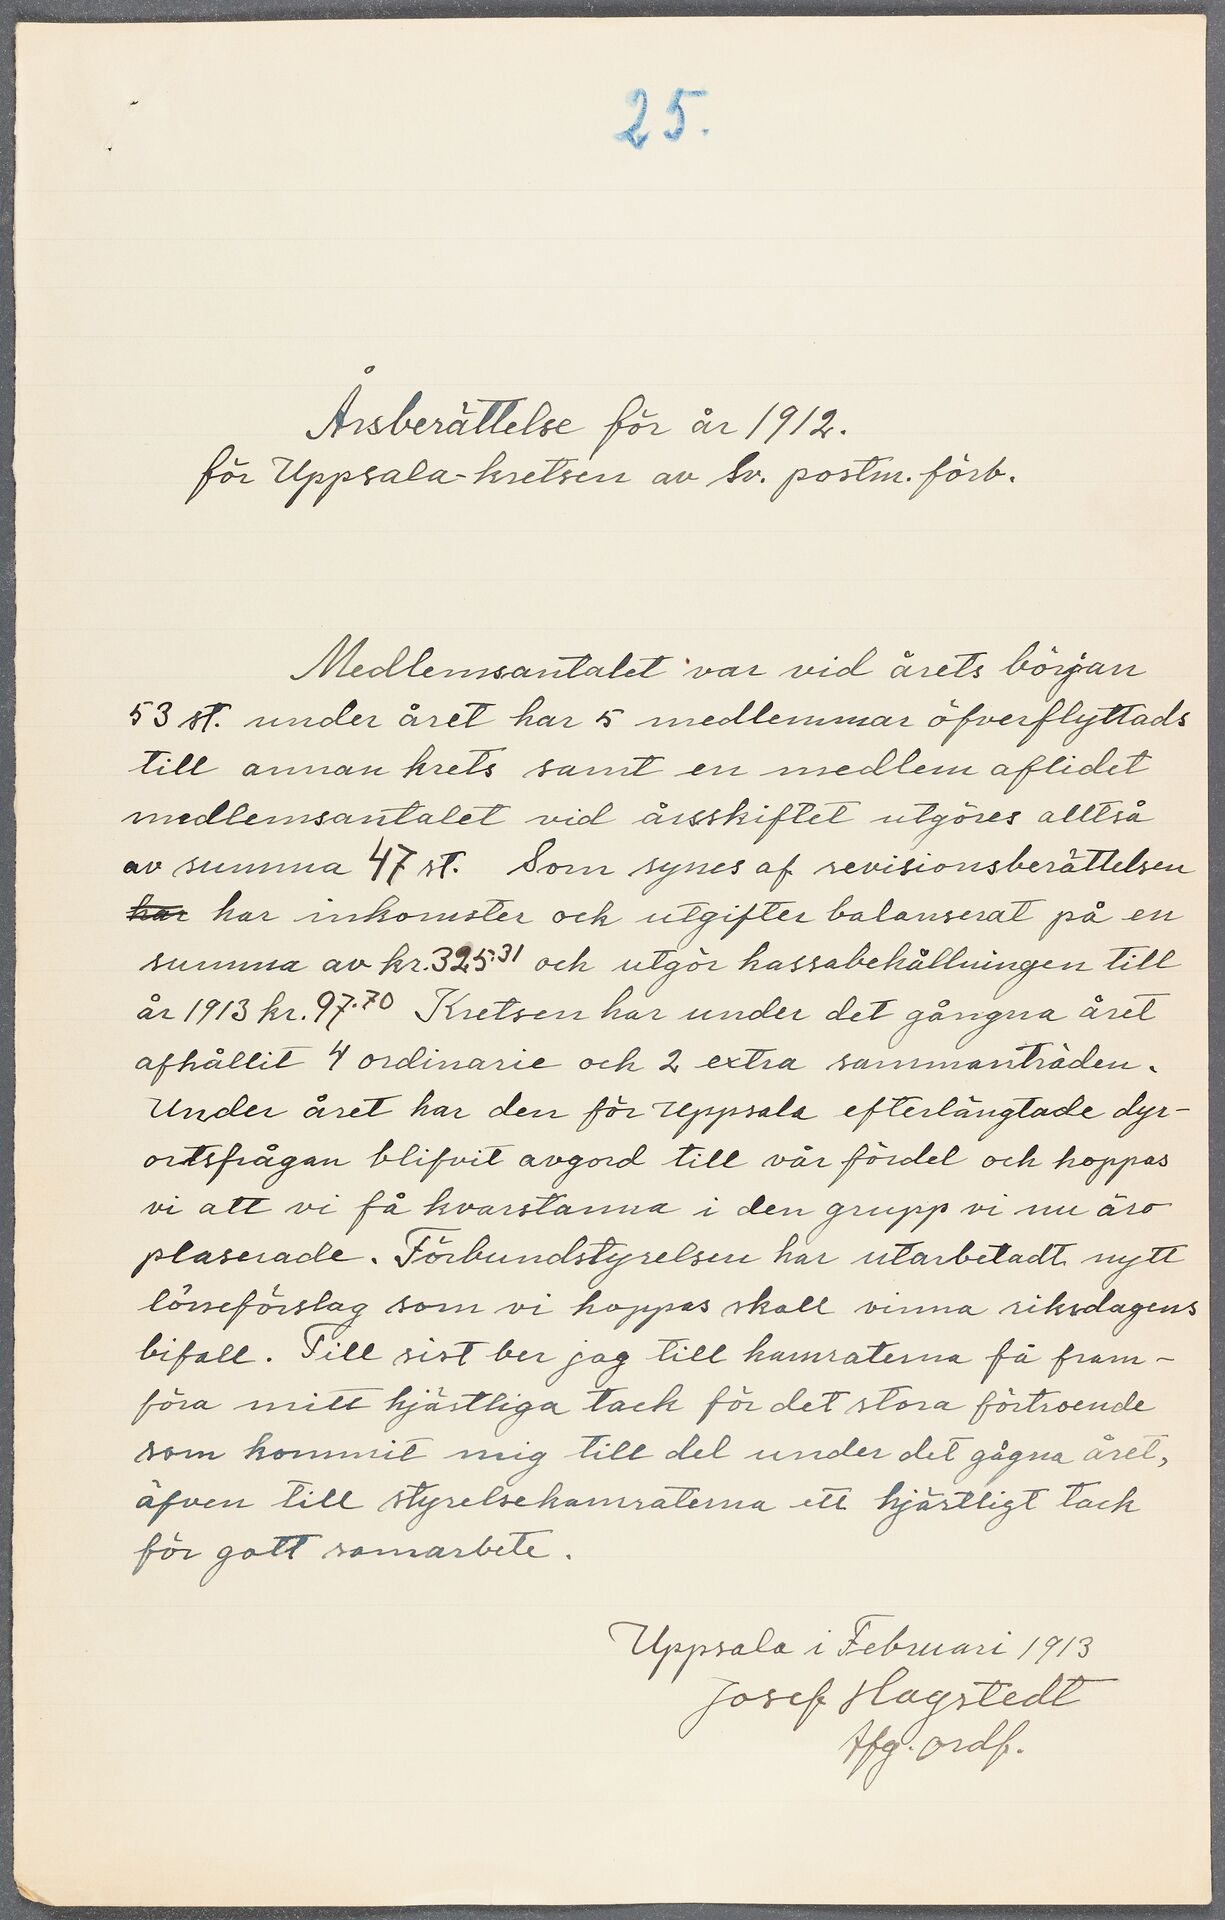 25.
Årsberättelse för år 1912.
för Uppsala-kretsen av Sv. postm. förb.
Medlemsantalet var vid årets början
53 st. under året har 5 medlemmar öfverflyttads
till annan krets samt en medlem aflidet
medlemsantalet vid årsskiftet utgöres alltså
av summa 47 st. Som synes af revisionsberättelsen
har har inkomster och utgifter balanserat på en
summa av kr. 325.31 och utgör kassabehållningen till
år 1913 kr. 97.70 Kretsen har under det gångna året
afhållit 4 ordinarie och 2 extra sammanträden.
Under året har den för Uppsala efterlängtade dyr-
ortsfrågan blifvit avgord till vår fördel och hoppas
vi att vi få kvarstanna i den grupp vi nu äro
plaserade. Förbundstyrelsen har utarbetadt nytt
löneförslag som vi hoppas skall vinna riksdagens
bifall. Till sist ber jag till kamraterna få fram-
föra mitt hjärtliga tack för det stora förtroende
som kommit mig till del under det gågna året,
äfven till styrelsekamraterna ett hjärtligt tack
för gott samarbete.
Uppsala i Februari 1913
Josef Hagstedt
Afg. ordf.